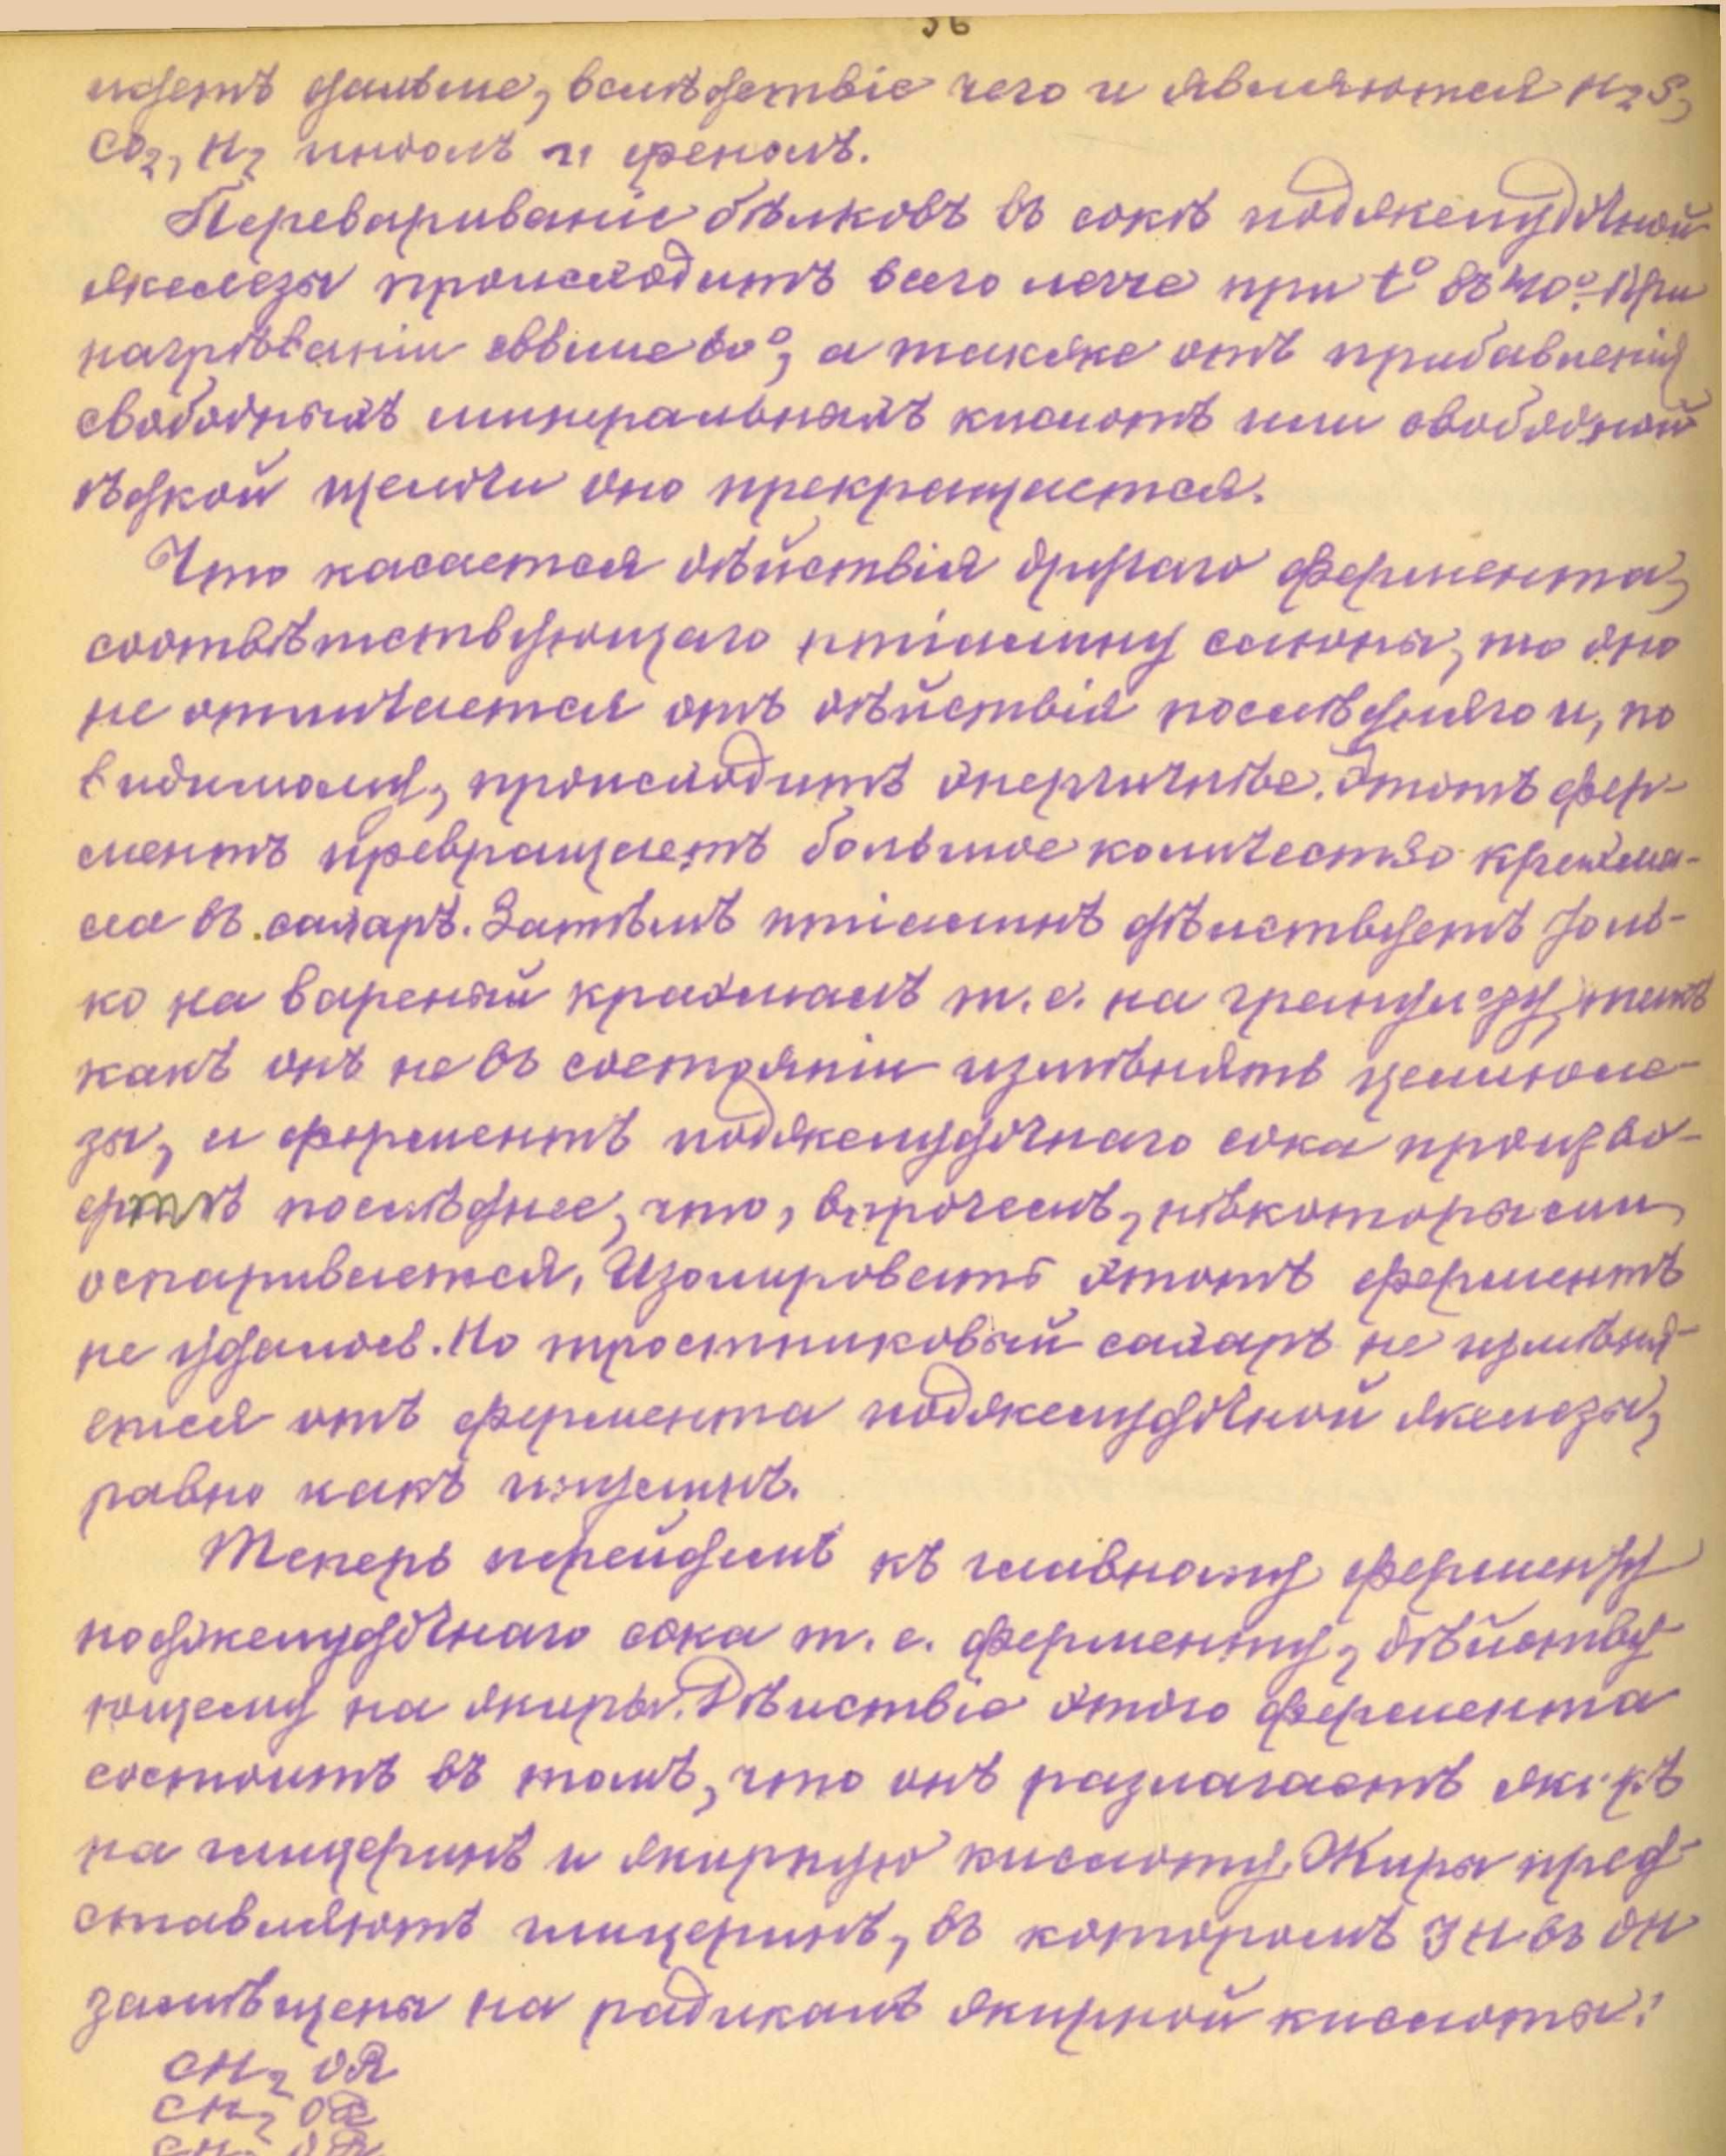 идетъ дальше, вслѣдствіе чего и являются H2S,
CO2, H2 индолъ и фенолъ.
Перевариваніе бѣлковъ въ сокѣ поджелудочной
железы происходитъ всего легче при t° въ 40°. При
нагрѣваніи свыше 60°, а также отъ прибавленія
свободныхъ минеральныхъ кислотъ или свободной
ѣдкой щелочи оно прекращается.
Что касается дѣйствія другаго фермента,
соотвѣтствующаго птіалину слюны, то оно
не отличается отъ дѣйствія послѣдняго и, по
видимому, происходитъ энергичнѣе. Этотъ фер-
ментъ превращаетъ большое количество крахма-
ла въ сахаръ. Затѣмъ птіалинъ дѣйствуетъ толь-
ко на вареный крахмалъ т. е. на гранулезу, такъ
какъ онъ не въ состояніи измѣнять целлюло-
зы, и ферментъ поджелудочнаго сока произво-
дитъ послѣднее, что, впрочемъ, нѣкоторыми
оспаривается. Изолировать этотъ ферментъ
не удалось. Но тростниковый сахаръ не измѣня-
ется отъ фермента поджелудочной железы,
равно какъ
Теперь перейдемъ къ главному ферменту
поджелудочнаго сока т. е. ферменту, дѣйству-
ющему на жиры. Дѣйствіе этого фермента
состоитъ въ томъ, что онъ разлагаетъ жиръ
на глицеринъ и жирную кислоту. Жиры пред-
ставляютъ глицеринъ, въ которомъ 3 H въ OH
замѣщены на радикалъ жирной кислоты:
CH2 OR
CH2 OR